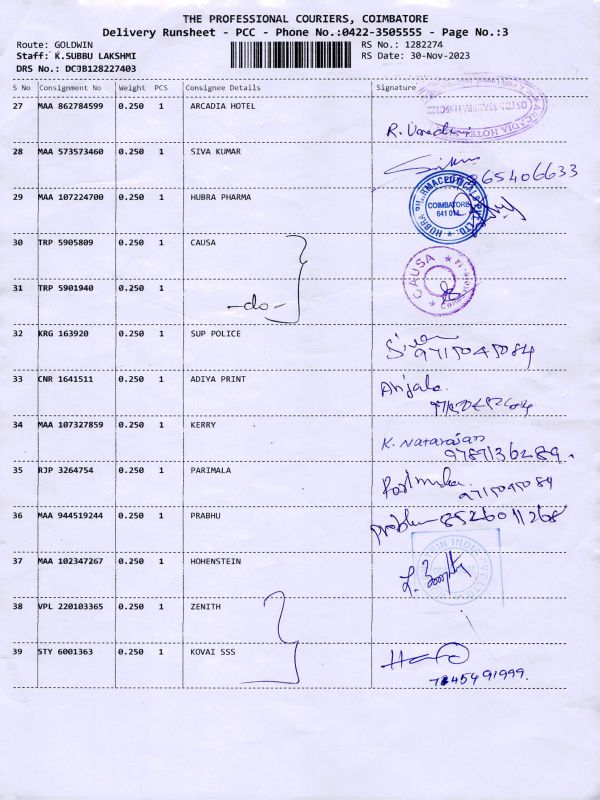 THE PROFESSIONAL COURIERS, COIMBATORE
Delivery Runsheet - PCC - Phone No.:0422-3505555 - Page No.:3
Route: GOLDWIN
RS No.: 1282274
Staff: K.SUBBU LAKSHMI
RS Date: 30-Nov-2023
DRS No.: DCJB128227403
S No Consignment No Weight PCS Consignee Details Signature
27 MAA 862784599 0.250 1 ARCADIA HOTEL
ARCADIA HOTEL
28 MAA 573573460 0.250 1 SIVA KUMAR
29 MAA 107224700 0.250 1 HUBRA PHARMA
COIMBATORE
641 014
30 TRP 5905809 0.250 1 CAUSA
CAUSA
31 TRP 5901940 0.250 1
-do-
32 KRG 163920 0.250 1 SUP POLICE
9715045084
33 CNR 1641511 0.250 1 ADIYA PRINT
34 MAA 107327859 0.250 1 KERRY
K. Natarajan
9787136289.
35 RJP 3264754 0.250 1 PARIMALA
9715045084
36 MAA 944519244 0.250 1 PRABHU
8526011268
37 MAA 102347267 0.250 1 HOHENSTEIN
38 VPL 220103365 0.250 1 ZENITH
39 STY 6001363 0.250 1 KOVAI SSS